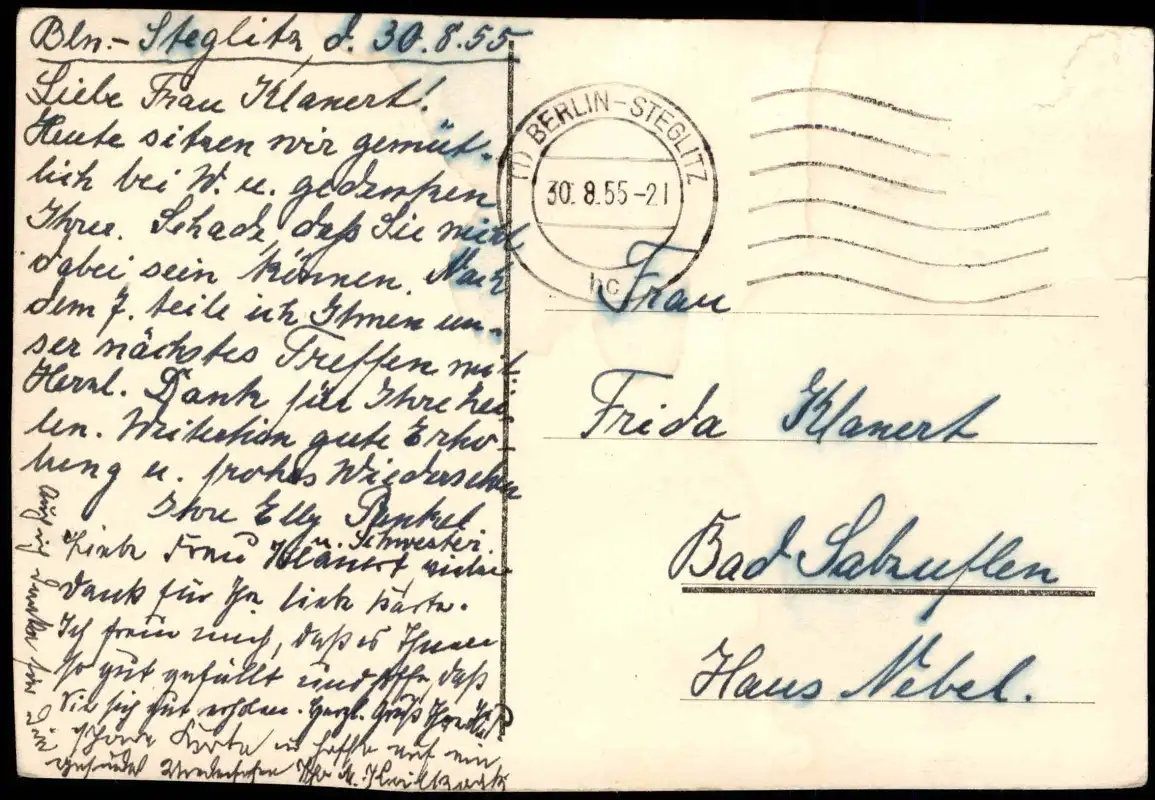 Bln.-Steglitz, d. 30.8.55
Liebe Frau Klanert!
Heute sitzen wir gemüt-
lich bei W. u. gedenken
Ihrer. Schade, daß Sie nicht
dabei sein können. Nach
dem 7. teile ich Ihnen un-
ser nächstes Treffen mit.
Herzl. Dank für Ihre Zei
len. Weiterhin gute Erho
lung u. frohes Wiedersehen
Ihre Elly
u. Schwester.
Liebe Frau Klanert, vielen
Dank für Ihre liebe Karte.
Ich freue mich, daß es Ihnen
so gut gefällt und hoffe, daß
Sie sich gut erholen. Herzl. Grüße Ihre
Auch ich danke für die
schöne Karte u hoffe auf ein
gesundes Wiedersehen Ihre M.
(1) BERLIN-STEGLITZ
30.8.55-21
hc
Frau
Frida Klanert
Bad Salzuflen
Haus Nebel.